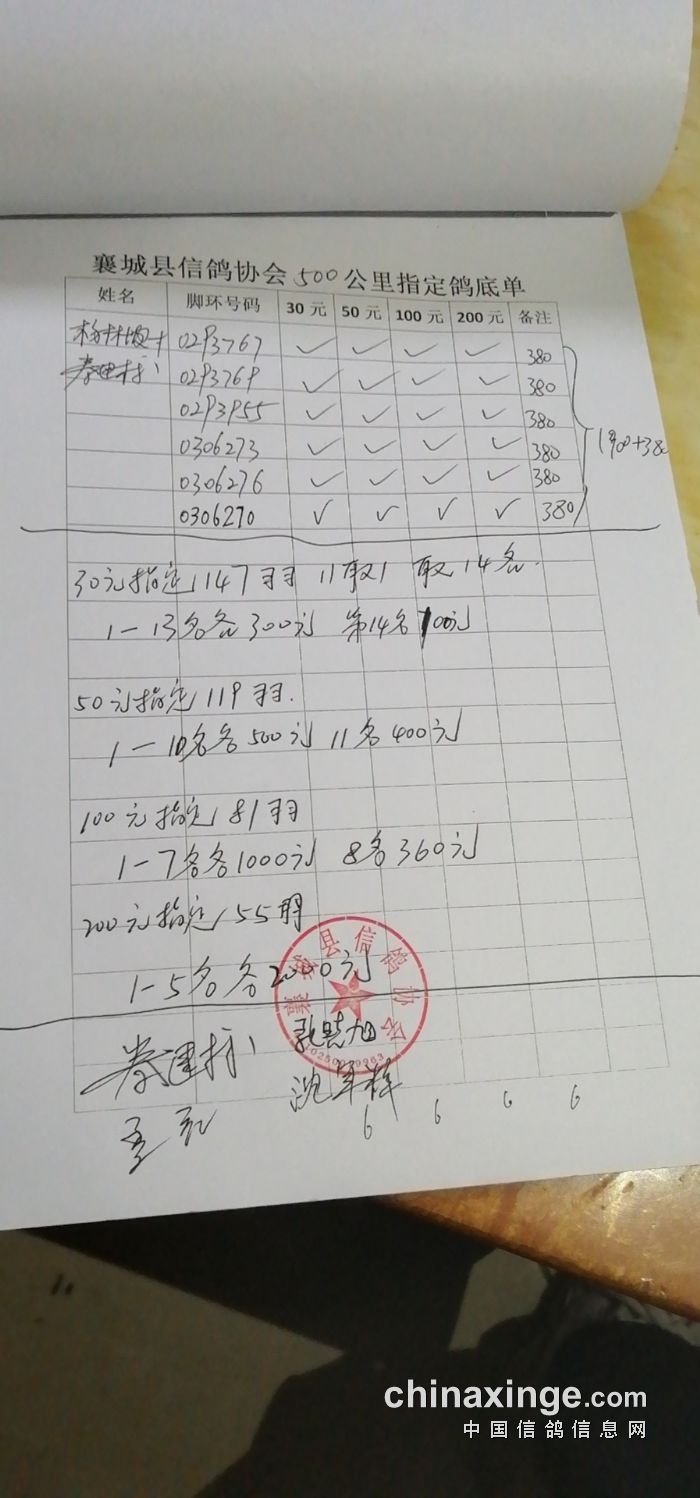 襄城县信鸽协会500公里指定鸽底单
姓名 脚环号码 30元 50元 100元 200元 备注
0293767 ✓ ✓ ✓ ✓ 380
秦建村 0293769 ✓ ✓ ✓ ✓ 380
0293955 ✓ ✓ ✓ ✓ 380
0306273 ✓ ✓ ✓ ✓ 380
0306276 ✓ ✓ ✓ ✓ 380
0306270 ✓ ✓ ✓ ✓ 380
1900+380
30元指定147羽 11取1 取14名.
1-13名各300元 第14名100元
50元指定119羽.
1-10名各500元 11名400元
100元指定81羽
1-7名各1000元 8名360元
200元指定55羽
1-5名各2000元
襄城县信鸽协会
秦建村
6 6 6 6
chinaxinge.com
中国信鸽信息网